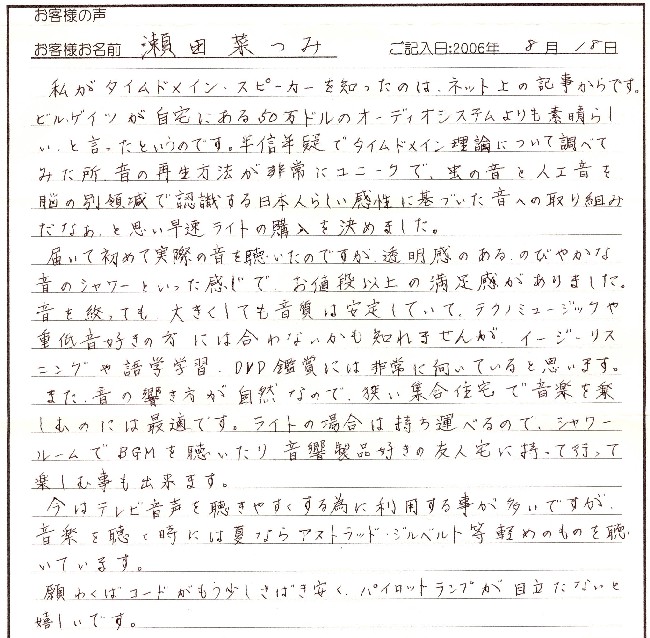 お客様の声
お客様お名前 瀬田菜つみ ご記入日:2006年 8月 18日
私がタイムドメイン・スピーカーを知ったのは、ネット上の記事からです。
ビル・ゲイツが自宅にある50万ドルのオーディオシステムよりも素晴らし
い、と言ったというのです。半信半疑でタイムドメイン理論について調べて
みた所、音の再生方法が非常にユニークで、虫の音と人工音を
脳の別領域で認識する日本人らしい感性に基づいた音への取り組み
だなぁ、と思い早速ライトの購入を決めました。
届いて初めて実際の音を聴いたのですが、透明感のある、のびやかな
音のシャワーといった感じで、お値段以上の満足感がありました。
音を絞っても、大きくしても音質は安定していて、テクノミュージックや
重低音好きの方には合わないかも知れませんが、イージーリス
ニングや語学学習、DVD鑑賞には非常に向いていると思います。
また、音の響き方が自然なので、狭い集合住宅で音楽を楽
しむのには最適です。ライトの場合は持ち運べるので、シャワー
ルームでBGMを聴いたり、音響製品好きの友人宅に持って行って
楽しむ事も出来ます。
今はテレビ音声を聴きやすくする為に利用する事が多いですが、
音楽を聴く時には夏ならアストラッド・ジルベルト等軽めのものを聴
いています。
願わくばコードがもう少しさばき安く、パイロットランプが目立たないと
嬉しいです。